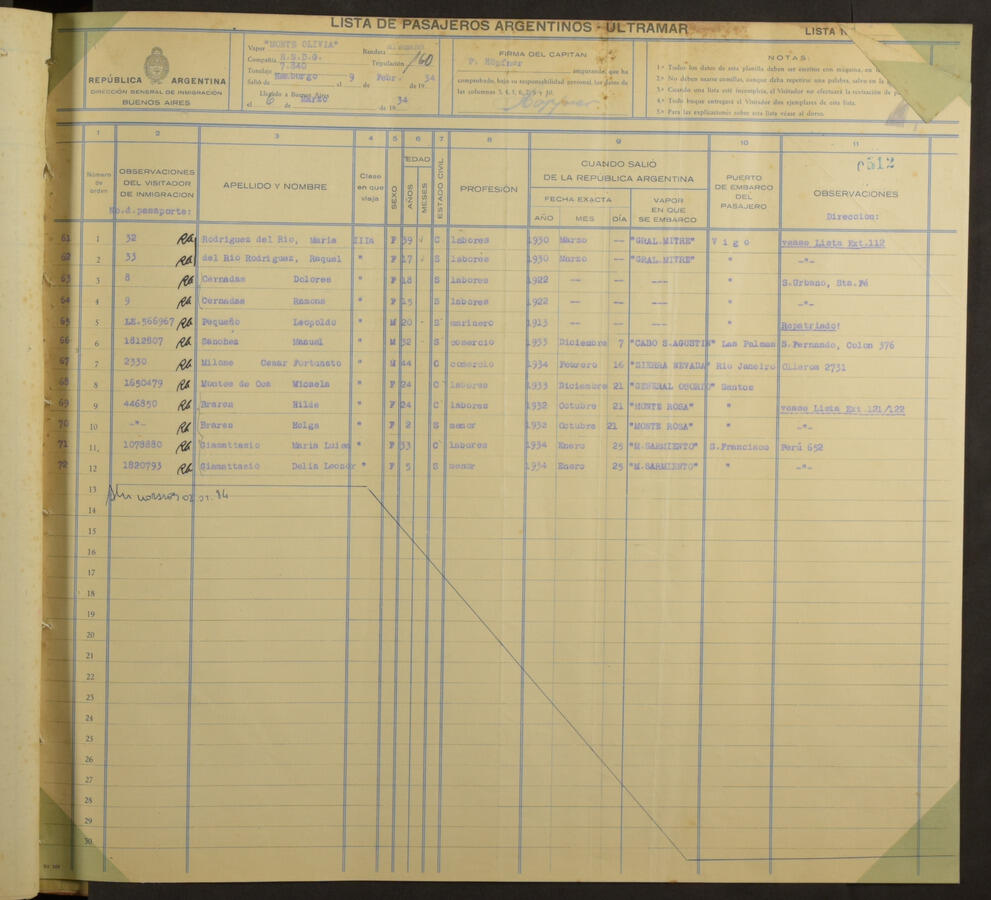 LISTA DE PASAJEROS ARGENTINOS - ULTRAMAR
LISTA N
REPÚBLICA ARGENTINA
DIRECCIÓN GENERAL DE INMIGRACIÓN
BUENOS AIRES
Vapor "MONTE OLIVIA" Bandera
Compañía H.S.D.G. Tripulación 160
Tonelaje 7.840
Salió de Hamburgo el 9 de Febr. de 19 34
Llegado a Buenos Aires
el 6 de Marzo de 19 34
FIRMA DEL CAPITAN
P. Höpfner asegurando que ha
comprobado, bajo su responsabilidad personal, los datos de
las columnas 3, 4, 5, 6, 7, 8, 9 y 10.
NOTAS:
1.a Todos los datos de esta planilla deben ser escritos con máquina, en
2.a No deben usarse comillas, aunque deba repetirse una palabra, salvo en la
3.a Cuando una lista esté incompleta, el Visitador no efectuará la revisación de
4.a Todo buque entregará el Visitador dos ejemplares de esta lista.
5.a Para las explicaciones sobre esta lista véase al dorso.
0512
1 2 3 4 5 6 7 8 9 10 11
Número de orden
OBSERVACIONES DEL VISITADOR DE INMIGRACION
No.d.pasaporte:
APELLIDO Y NOMBRE
Clase en que viaja
SEXO
EDAD
AÑOS
MESES
ESTADO CIVIL
PROFESIÓN
CUANDO SALIÓ DE LA REPÚBLICA ARGENTINA
FECHA EXACTA
AÑO MES DÍA
VAPOR EN QUE SE EMBARCO
PUERTO DE EMBARCO DEL PASAJERO
OBSERVACIONES
Direccion:
61 1 32 Rodriguez del Rio, Maria IIIa F 39 C labores 1930 Marzo — "GRAL.MITRE" Vigo vease Lista Ext.112
62 2 33 del Rio Rodriguez, Raquel " F 17 S labores 1930 Marzo — "GRAL.MITRE" " -"-
63 3 8 Cernadas Dolores " F 18 S labores 1922 — — --- " S.Urbano, Sta.Fé
64 4 9 Cernadas Ramona " F 15 S labores 1922 — — --- " -"-
65 5 LE.566967 Pequeño Leopoldo " M 20 - S marinero 1913 — — --- " Repatriado!
66 6 1812807 Sanchez Manuel " M 32 - S comercio 1933 Diciembre 7 "CABO S.AGUSTIN" Las Palmas S.Fernando, Colon 376
67 7 2330 Milone Cesar Fortunato " M 44 C comercio 1934 Febrero 16 "SIERRA NEVADA" Rio Janeiro Olleros 2731
68 8 1650479 Montes de Oca Micaela " F 24 C labores 1933 Diciembre 21 "GENERAL OSORIO" Santos
69 9 446850 Braren Hilde " F 24 C labores 1932 Octubre 21 "MONTE ROSA" " vease Lista Ext.121/122
70 10 -"- Braren Helga " F 2 S menor 1932 Octubre 21 "MONTE ROSA" " -"-
71 11 1078880 Giamattasio Maria Luisa " F 33 C labores 1934 Enero 25 "M.SARMIENTO" S.Francisco Perú 652
72 12 1820793 Giamattasio Delia Leonor " F 5 S menor 1934 Enero 25 "M.SARMIENTO" " -"-
13
14
15
16
17
18
19
20
21
22
23
24
25
26
27
28
29
30